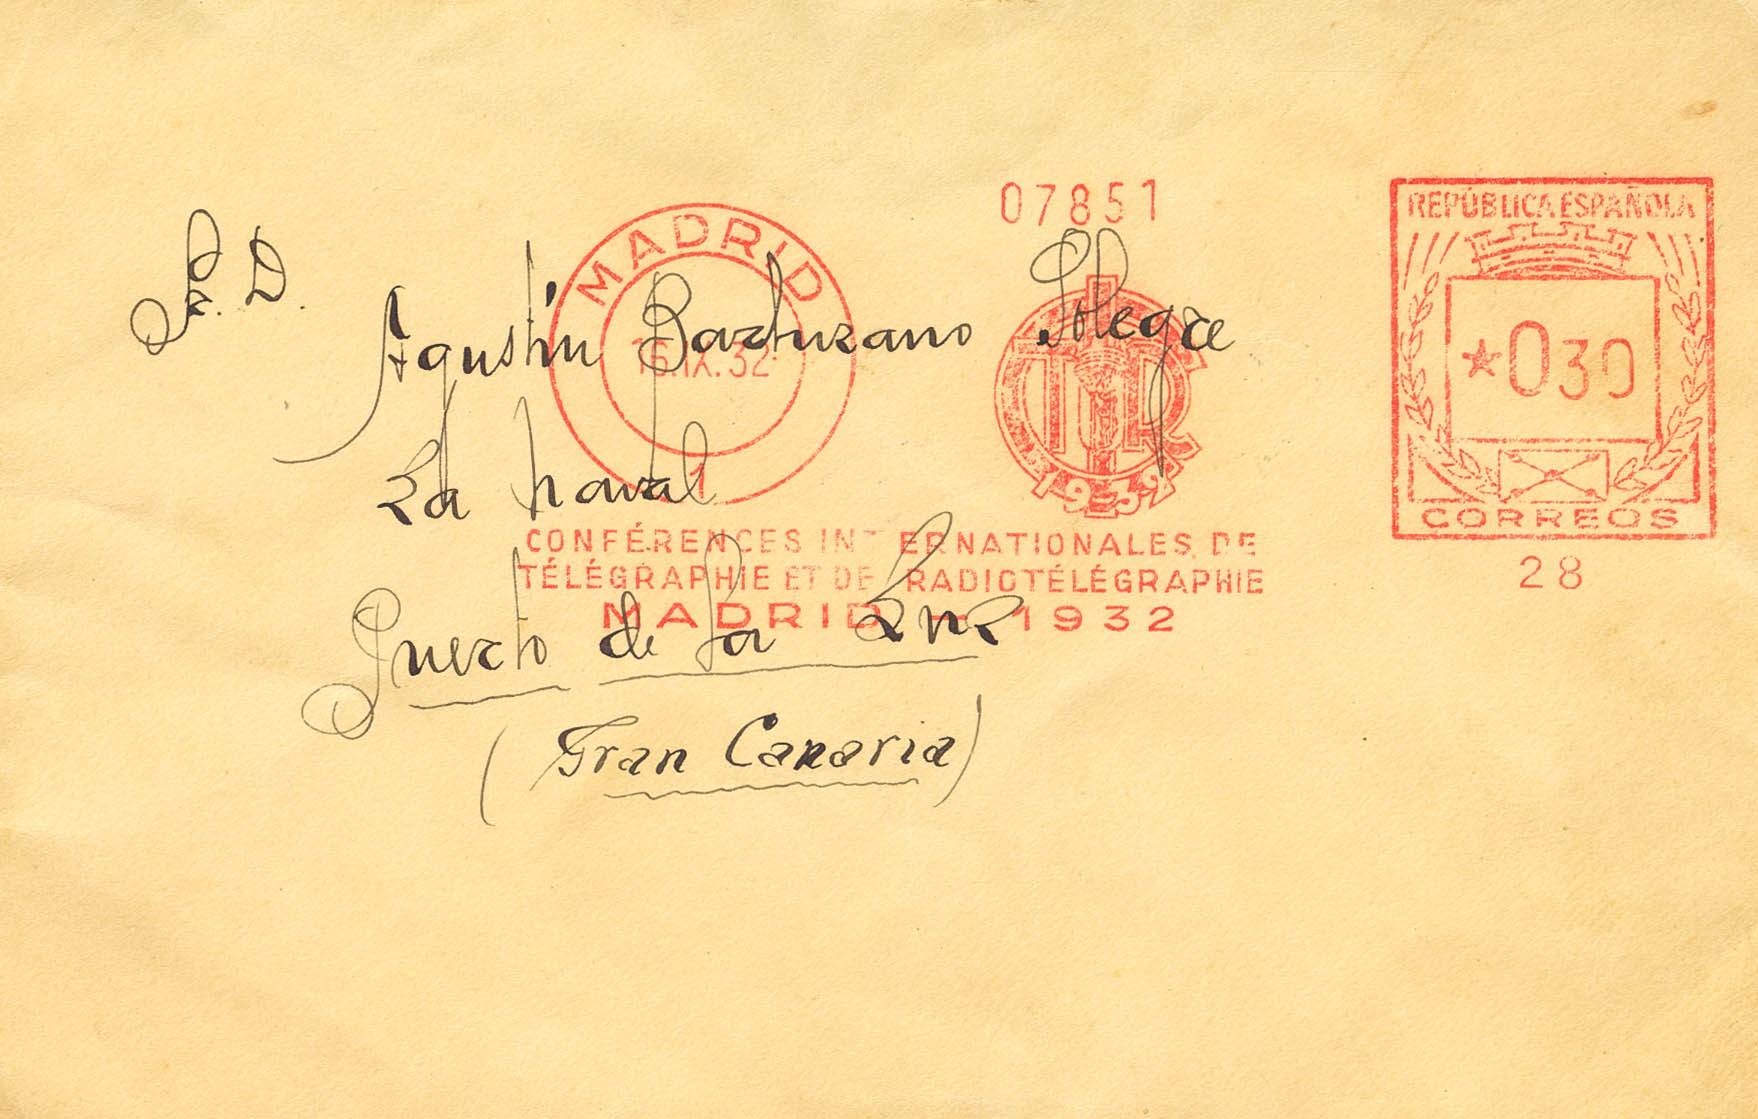 07851
REPÚBLICA ESPAÑOLA
MADRID
S. D.
Agustín
15.IX.32
*030
TTR
1932
1
La Naval
CORREOS
CONFÉRENCES INTERNATIONALES DE
TÉLÉGRAPHIE ET DE RADIOTÉLÉGRAPHIE
MADRID – 1932
28
Puerto de la Luz
(Gran Canaria)